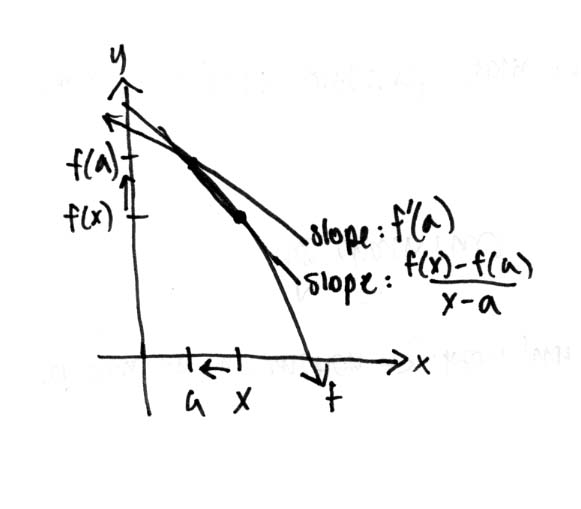 y
f(a)
f(x)
slope: f'(a)
slope: f(x)-f(a)
x-a
x
a x
f